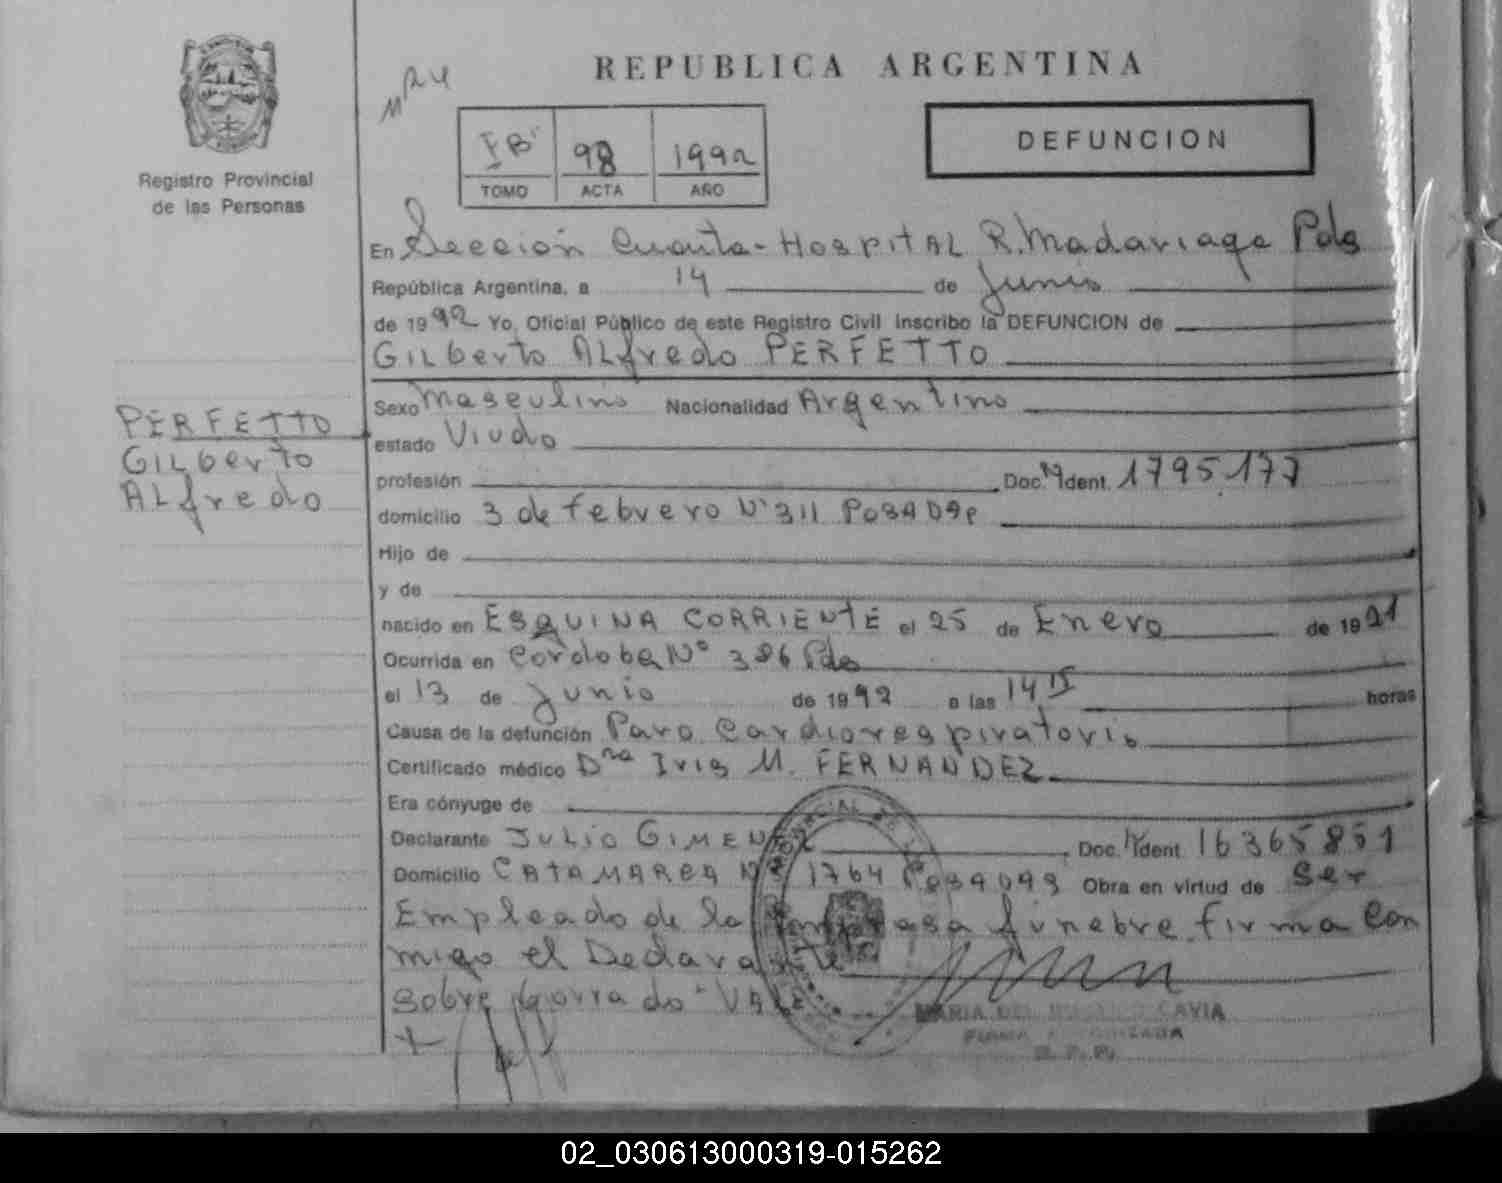 REPUBLICA ARGENTINA
Registro Provincial
de las Personas
DEFUNCION
98 1992
TOMO ACTA AÑO
En Sección Cuarta - HOSPITAL R. Madariaga Pdas
República Argentina, a 14 de Junio
de 1992 Yo, Oficial Público de este Registro Civil inscribo la DEFUNCION de
GILberto ALfredo PERFETTO
PERFETTO
GILberto
ALfredo
Sexo Masculino Nacionalidad Argentino
estado Viudo
profesión Doc. Ident. 1795.177
domicilio 3 de febrero N° 311 POSADAS
Hijo de
y de
nacido en ESQUINA CORRIENTE el 25 de Enero de 1921
Ocurrida en Cordoba N° 386 Pdas
el 13 de Junio de 1992 a las 14 horas
Causa de la defunción Paro Cardiorespiratorio
Certificado médico Dra Iris M. FERNANDEZ
Era cónyuge de
Declarante JULIO GIMENEZ Doc. Ident. 16365851
Domicilio CATAMARCA N° 1764 Posadas Obra en virtud de Ser
Empleado de la Empresa funebre firma Con
migo el Declarante
Sobre borrado "VALE
MARIA DEL CAVIA
FIRMA AUTORIZADA
R. P. P.
02_030613000319-015262